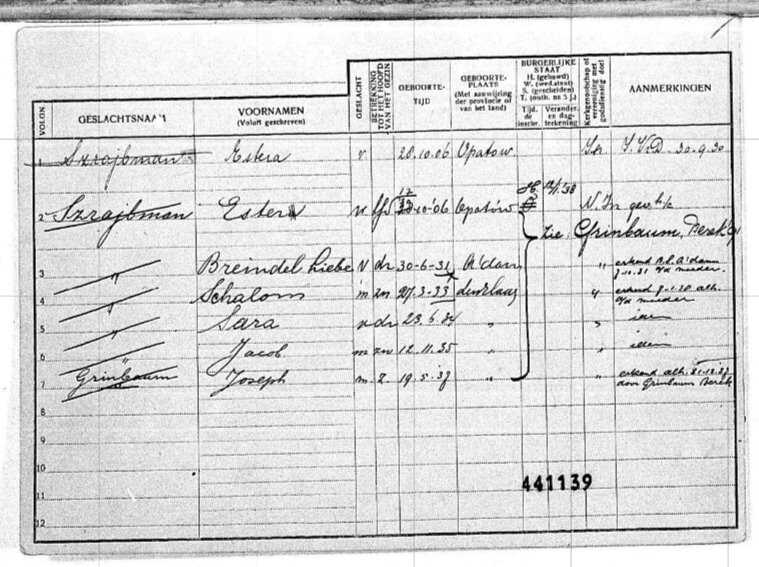 VOLGN.
GESLACHTSNAAM
VOORNAMEN
(Voluit geschreven)
GESLACHT
BETREKKING TOT HET HOOFD VAN HET GEZIN
GEBOORTE-TIJD
GEBOORTE-PLAATS
(Met aanwijzing der provincie of van het land)
BURGERLIJKE STAAT
H. (gehuwd)
W. (wed.staat)
S. (gescheiden)
T. (onth. no 5 j.)
Tijd. de inschr.
Verander. en dagteekening
Kerkgenootschap of vereeniging met godsdienstig doel
AANMERKINGEN
1 Szrajbman Estera v 20.10.06 Opatow 30-9-30
2 Szrajbman Estera v 12 10-06 Opatów H. N.Isr
zie: Grinbaum, Berek
3 " Breindel Liebe v dr 30-6-31 A'dam " erkend A'dam
4 " Schalom m zn 27-3-33 " erkend
moeder
5 " Sara v dr 23.6.34 " " idem
6 " Jacob m zn 12.11.35 " " idem
7 Grinbaum Joseph m. z. 19.5.37 " " erkend
door Grinbaum Berek
8
9
10
11
12
441139